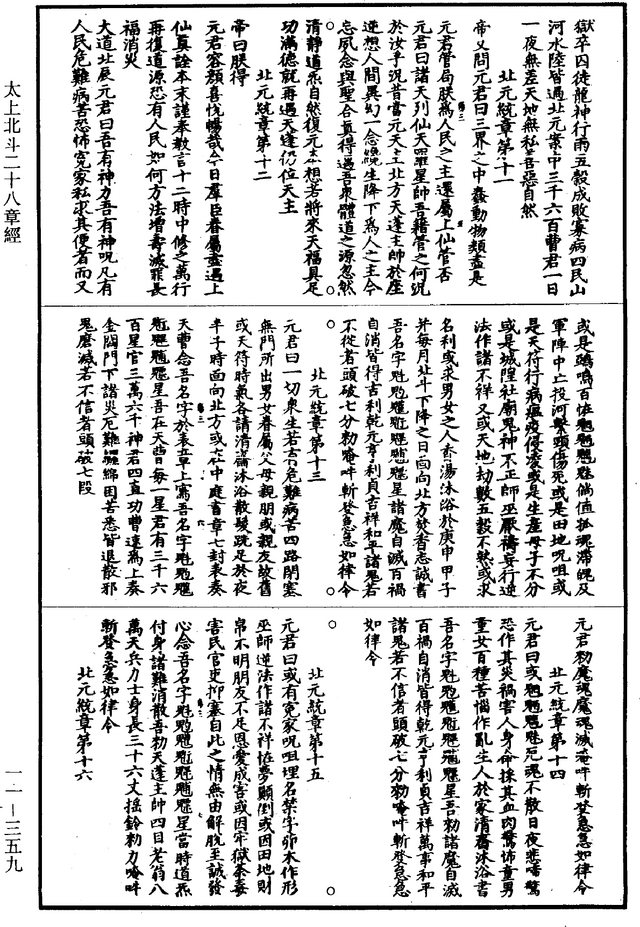 獄卒囚徒龍神行雨五穀成敗寡病四民山
河水陸皆過北元案中三千六百曹君一日
一夜無差天地無私善惡自然
北元統章第十一
帝又問元君曰三界之中蠢動物類盡是
元君管局朕為人民之主還屬上仙管否
元君曰諸天列仙天羅星師吾籍管之何況
於汝乎況昔當元天王北方天蓬主帥於座
逆想人間異幻一念纔生降下為人之主今
忘夙念與聖合真得遇吾衆體道之源忽然
清靜道炁自然復元本想若將來天福具足
功滿德就再遇天蓬仍位天主
北元統章第十二
帝曰朕得
元君容顏喜悅暢哉今日羣臣眷屬盡遇上
仙真詮本末謹奉教言十二時中修之萬行
再復道源恐有人民如何方法增壽滅罪長
福消災
大道北辰元君曰吾有神力吾有神呪凡有
人民危難病苦恐怖冤家私求其便者而又
或是鵶鳴百怪魍魎魑魅倘値孤魂滯魄及
軍陣中亡投河繫頸傷死或是田地呪咀或
是天符行病瘟疫侵凌或是生產母子不分
或是城隍社廟鬼神不正師巫厭禱妄行逆
法作諸不祥又或天地劫數五穀不熟或求
名利或求男女之人香湯沐浴於庚申甲子
并每月北斗下降之日面向北方於香志誠書
吾名字魁星諸魔自滅百禍
自消皆得吉利乾元亨利貞吉祥和平諸鬼若
不從者頭破七分勑唵吽斬登急急如律令
北元統章第十三
元君曰一切衆生若有危難病苦四路閉塞
無門所出男女眷屬父母親朋或親友故舊
或天符時氣各請清齋沐浴散髮跣足於夜
半子時面向北方或在中庭書章七封表奏
天曹念吾名字於表章上寫吾名字魁
星吾在天曹每一星君有三千六
百星官三萬六千神君四直功曹速為上奏
金闕門下諸災厄難纏綿困苦悉皆退散邪
鬼磨滅若不信者頭破七段
元君勑魔魂魔魂滅唵吽斬登急急如律令
北元統章第十四
元君曰或魍魎魑魅冤魂不散日夜悲啼驚
恐作其災禍害人身命採其血肉驚怖童男
童女百種苦惱作亂生人於家清齋沐浴書
吾名字魁星吾勑諸魔自滅
百禍自消皆得乾元亨利貞吉祥萬事和平
諸鬼若不信者頭破七分勑唵吽斬登急急
如律令
北元統章第十五
元君曰或有冤家呪咀埋名禁字卯木作形
巫師逆法作諸不祥怪夢顛倒或因田地財
帛不明朋友不足恩愛成害或因牢獄奈毒
害民官吏抑塞自此之情無由解脫至誠發
心念吾名字魁星當時道炁
付身諸難消散吾勑天蓬主帥四目老翁八
萬天兵力士身長三十六丈搖鈴勑力唵吽
斬登急急如律令
北元統章第十六
太上北斗二十八章經
一一—三五九